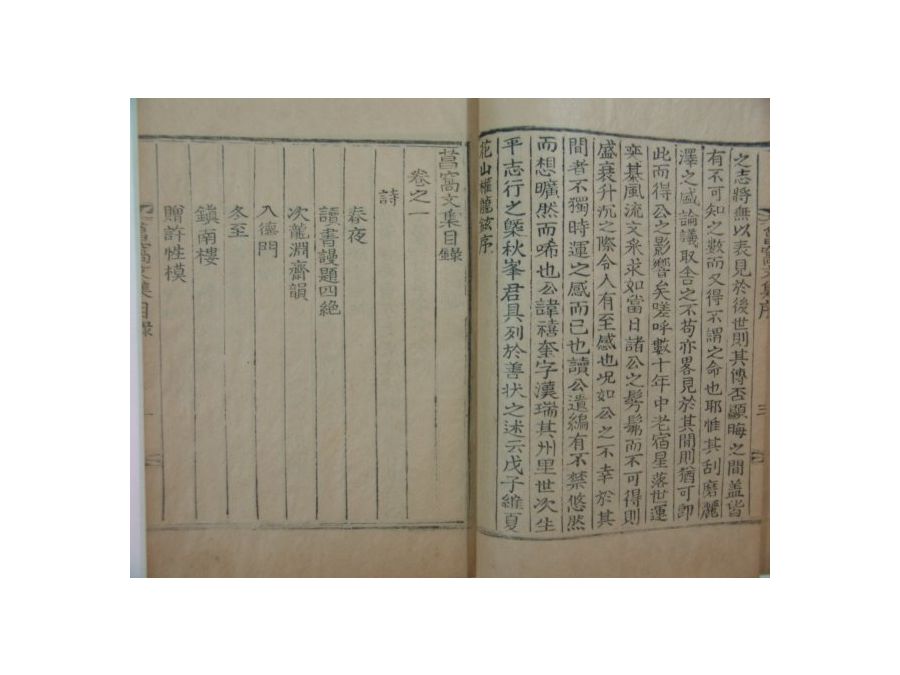 之志將無以表見於後世則其傳否顯晦之間盖皆
有不可知之數而又得不謂之命也耶惟其刮磨麗
澤之感論議取舍之不苟亦畧見於其間則猶可即
此而得公之影響矣嗟呼數十年中老宿星落世運
奕棊風流文采求如當日諸公之髣髴而不可得則
盛衰升沉之際令人有至感也况如公之不幸於其
間者不獨時運之感而已也讀公遺編有不禁悠然
而想曠然而唏也公諱禧奎字漢瑞其州里世次生
平志行之槩秋峯君具列於善状之述云戊子維夏
花山權龍鉉序
菖窩文集目錄
卷之一
詩
春夜
讀書謾題四絶
次龍淵齋韻
入德門
冬至
鎭南樓
贈許性模
窩文集目錄